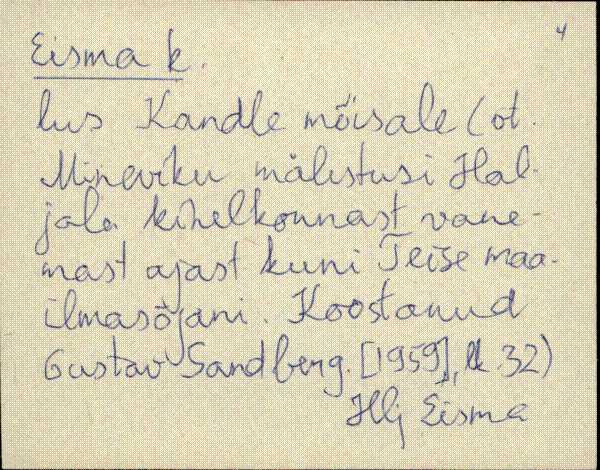 4
Eisma k.
lus Kandle mõisale (vt.
Mineviku mälestusi Hal-
jala kihelkonnast vane-
mast ajast kuni Teise maa-
ilmasõjani. Koostanud
Gustav Sandberg. [1959], lk. 32)
Hlj Eisma